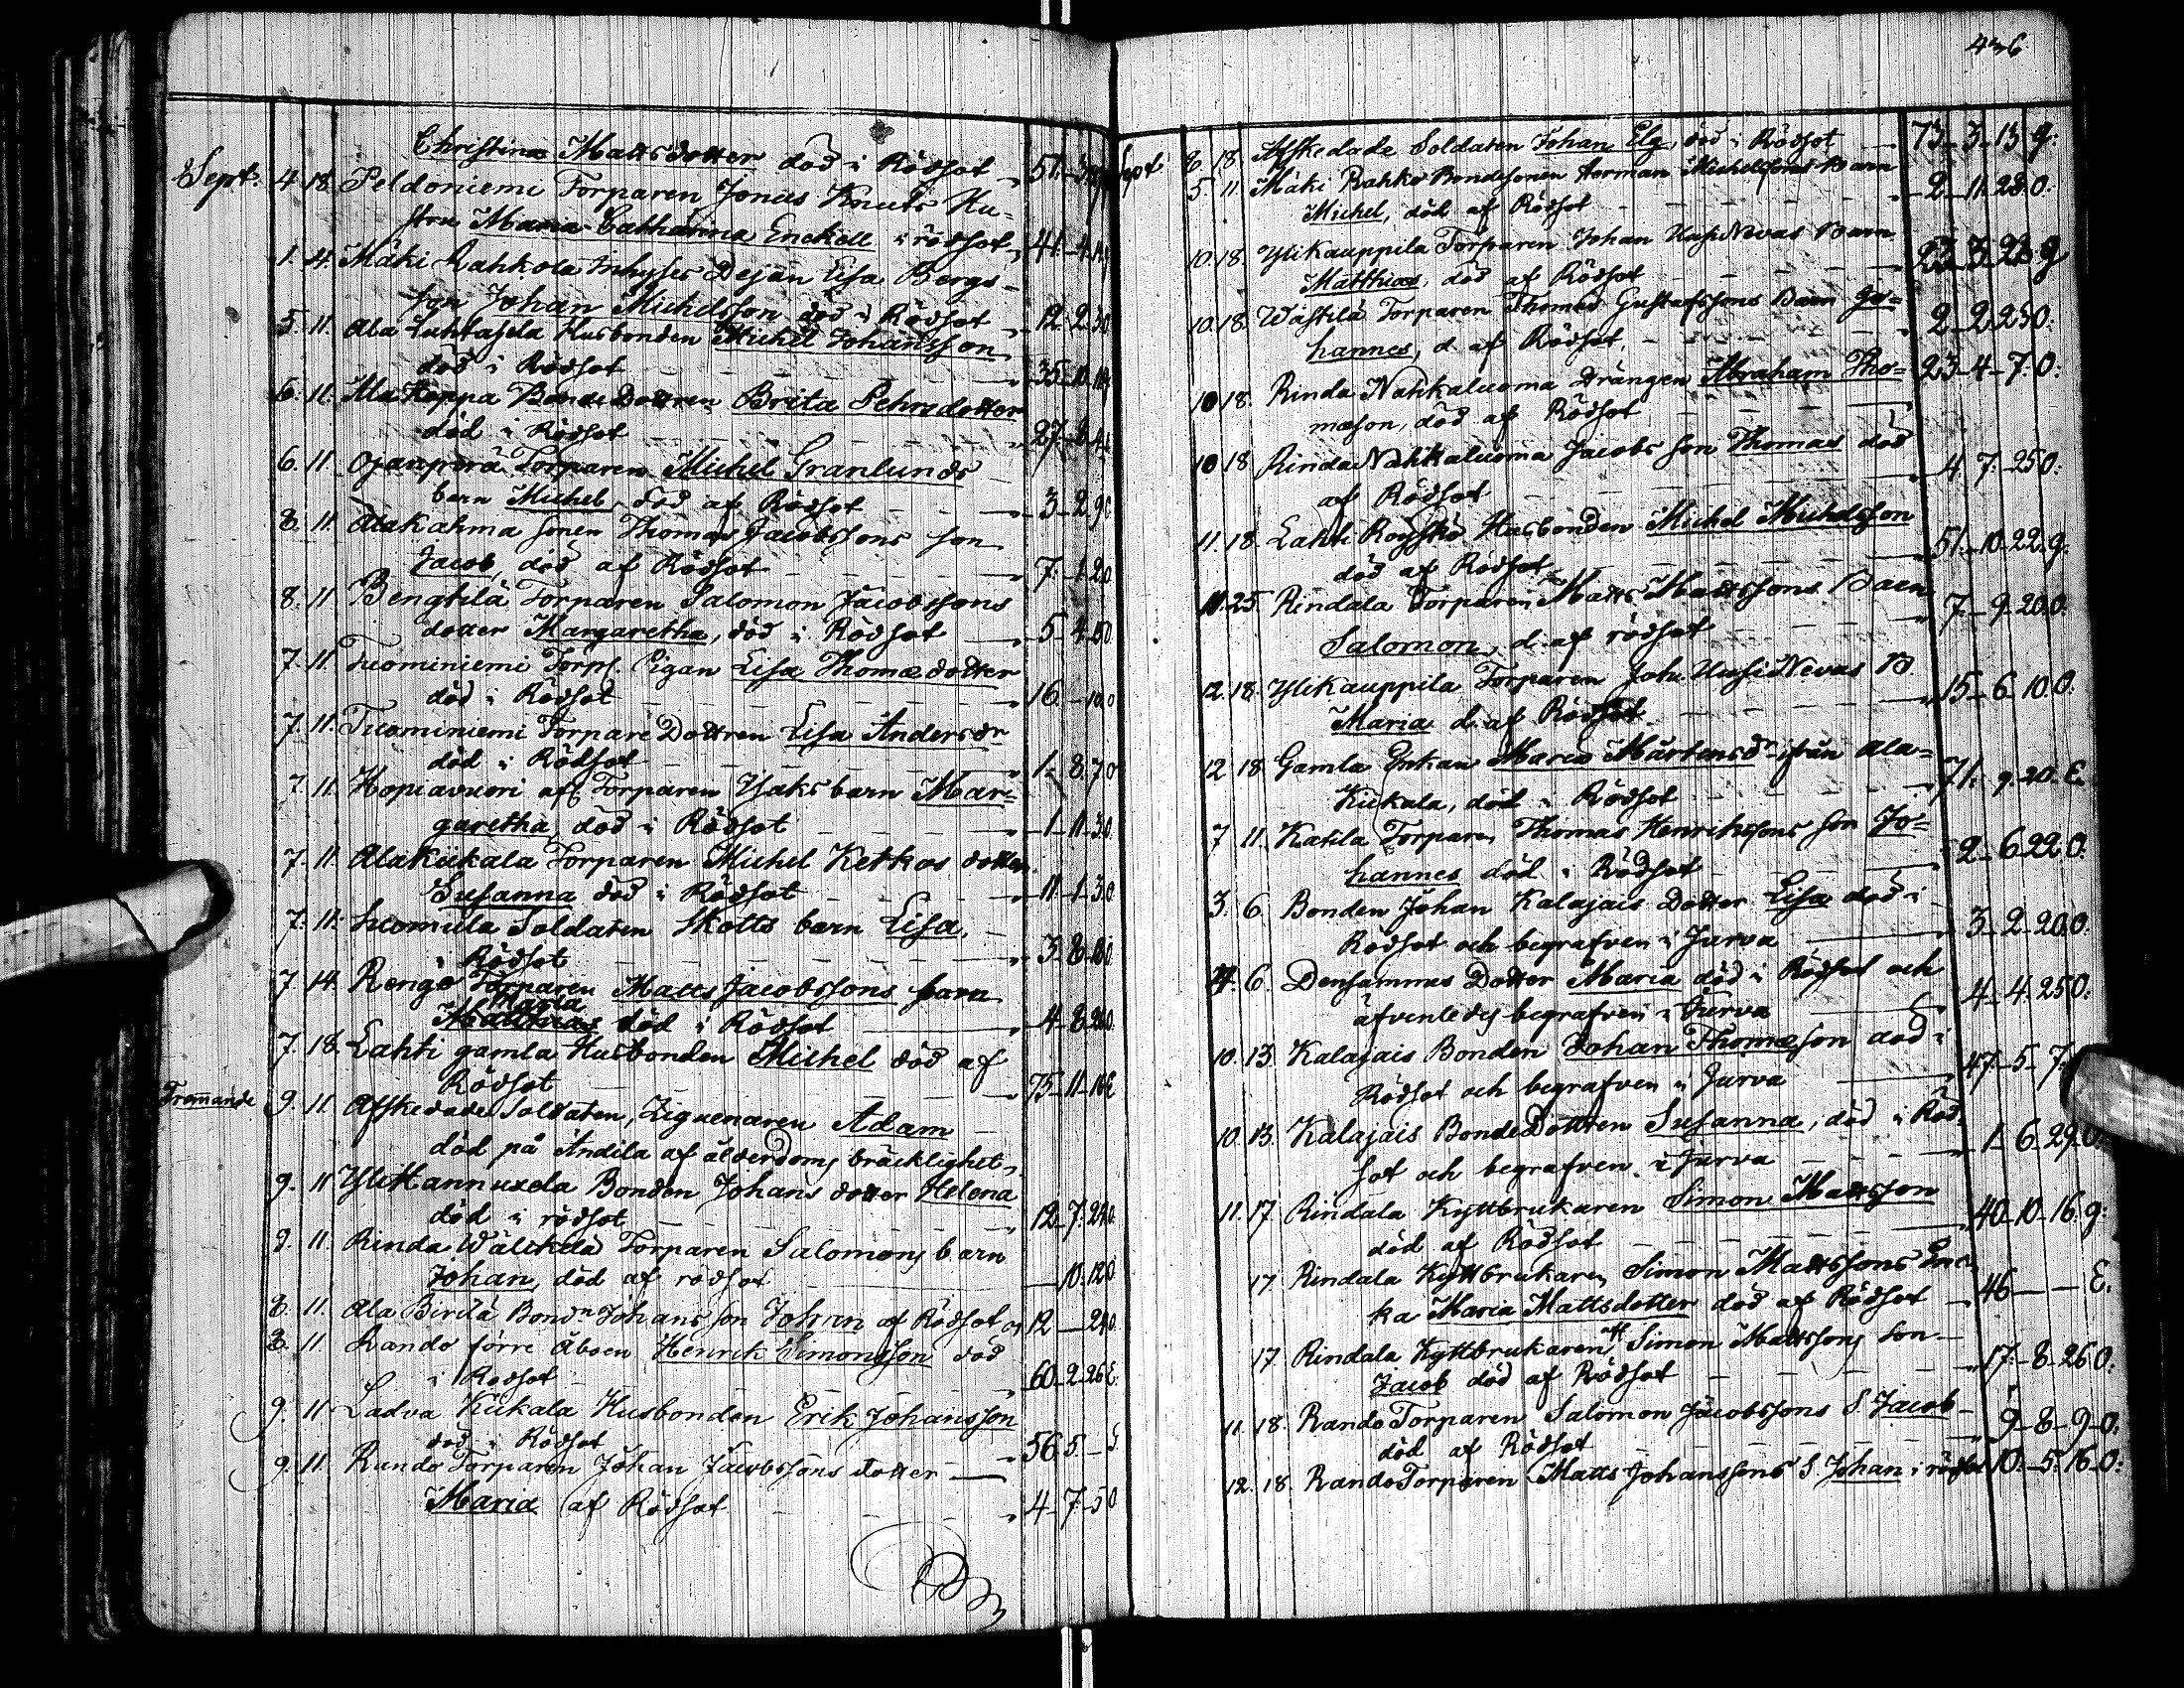 Christina Mattsdotter död i Rödsot
Sept: 4. 18. Peldoniemi Torparen Jonas Knuts Hu=
stru Maria Catharina Enckell i rödsot 41 - 4
1. 4. Mäki Lahkola Inhyses Dejan Lisa Bergs
son Johan Michelsson död i Rödsot 12. 2. 30
5. 11. Ala Luhtasela Husbonden Michel Johansson
död i Rödsot 35 - 10
6. 11. Ala Koppa Bonde Dottren Brita Pehrsdotter
död i Rödsot 27 - 8
6. 11 Ojanperä Torparen Michel Granlunds
barn Michel, död af Rödsot 3 - 2. 9
8. 11 Alakahma sonen Thomas Jacobssons son
Jacob, död af Rödsot 7 - 1. 2. 0
8. 11 Bengtilä Torparen Salomon Jacobssons
dotter Margaretha, död i Rödsot 5 - 4
7. 11. Tuominiemi Torps. Pigan Lisa Thomædotter
död i Rödsot 16. - 10. 0
7. 11. Tuominiemi Torpare Dottren Lisa Andersdr
död i Rödsot 1. 8. 7 0
7. 11. Hopiavuori afl. Torparen Ysaks barn Mar=
garetha, död i Rödsot 1 - 11. 3. 0.
7. 11. Alakiikala Torparen Michel Ketkos dotter
Susanna död i Rödsot 11 - 1. 3. 0
7. 11. Luomilla Soldaten Skotts barn Lisa,
i Rödsot 3 - 8
7. 14. Rengo Torparen Matts Jacobssons barn
Maria
Matthias död i Rödsot 4 - 8. 28. 0.
7. 18. Lahti gamla Husbonden Michel död af
Rödsot 75 - 11 - 16 E
Fremande 9. 11 Afskedade Soldaten, Ziguenaren Adam
död på Andila af ålderdoms bräcklighet
9. 11 Yli Hannuxela Bonden Johans dotter Helena
död i rödsot 12 - 7. 24. 0.
9. 11. Rinda Wälikela Torparen Salomons barn
Johan, död af rödsot - 10. 12 0
8. 11. Ala Pirilä Bondn Johans son Johan af Rödsot 12 - 24. 0.
8. 11. Rando förre Åboen Henrik Simonsson död
i Rödsot 60 - 2 - 26 E.
9. 11 Ladva Kiikala Husbonden Erik Johansson
död i Rödsot 56. 5. -
9. 11. Rando Torparen Johan Jacobssons dotter
Maria af Rödsot 4 - 7 - 5 0
436
Sept: 8. 18. Afskedade Soldaten Johan Elg, död i Rödsot 73 - 3 - 13 g:
5. 11. Mäki Rahko Bondesonen Herman Michelssons Barn
Michel, död af Rödsot 2 - 11. 28. 0.
10. 18. Ylikauppila Torparen Johan UusiNevas Barn
Matthias, död af Rödsot 23 - 3 - 28 g
10. 18. Wästilä Torparen Thomas Gustafssons Barn Jo=
hannes, d. af Rödsot 2 - 2. 25. 0.
10 18. Rinda Nahkaluoma drängen Abraham Tho= 23 - 4 - 7: 0:
mæson, död af Rödsot
10 18 Rinda Nahkaluoma Jacobs son Thomas död
af Rödsot 4. 7. - 25 0.
11. 18. Lahti Royskö Husbonden Michel Michelsson
död af Rödsot 51. - 10 - 22. g.
11. 25. Rindala Torparen Matts Mattssons Barn
Salomon, d. af rödsot 7. - 9. 20. 0.
12. 18. Ylikauppila Torparen Joh. UusiNevas B.
Maria d. af Rödsot 15 - 6 - 10. 0.
12 18 Gamla Enkan Maria Mårtensdr ifrån Ala=
Kiikala, död i Rödsot 71. 9. 20. E
7 11. Katila Torparen Thomas Henrikssons son Jo=
hannes död i Rödsot 2 - 6. 22. 0.
3. 6. Bonden Johan Kalajais Dotter Lisa död i
Rödsot och begrafven i Jurva 3 - 2 - 20. 0.
4. 6 Densammas Dotter Maria död i Rödsot och
äfvenledes begrafven i Jurva 4 - 4. 25 0.
10. 13 Kalajais Bonden Johan Thomæson död i
Rödsot och begrafven i Jurva 47. - 5 - 7.
10. 13. Kalajais BondeDottren Susanna, död i Röd
sot och begrafven i Jurva 1 - 6 - 29. 0.
11. 17 Rindala Kyttbrukaren Simon Mattsson
död af Rödsot 40 - 10 - 16. g:
17 Rindala Kyttbrukaren Simon Mattssons En=
ka Maria Mattsdotter död af Rödsot 46 - - E.
17 Rindala Kyttbrukaren Simon Mattssons Son
Jacob död af Rödsot 17. - 8 - 26. 0.
11. 18. Rando Torparen Salomon Jacobssons S. Jacob
död af Rödsot 9 - 8 - 9 - 0.
12. 18. Rando Torparen Matts Johanssons S. Johan i rödsot 10. - 5. 16. 0.